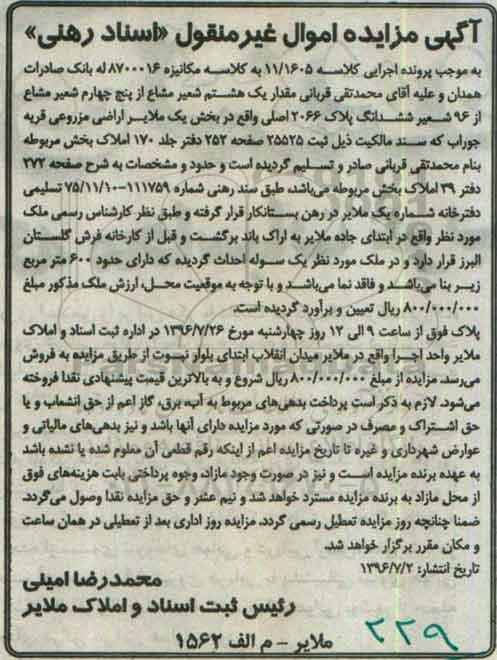 آگهی مزایده اموال غیرمنقول «اسناد رهنی»
به موجب پرونده اجرایی کلاسه ۱۱/۱۶۰۵ به کلاسه مکانیزه ۸۷۰۰۰۱۶ له بانک صادرات
همدان و علیه آقای محمدتقی قربانی مقدار یک هشتم شعیر مشاع از پنج چهارم شعیر مشاع
از ۹۶ شعیر ششدانگ پلاک ۲۰۶۶ اصلی واقع در بخش یک ملایر اراضی مزروعی قریه
جوراب که سند مالکیت ذیل ثبت ۲۵۵۲۵ صفحه ۲۵۲ دفتر جلد ۱۷۰ املاک بخش مربوطه
بنام محمدتقی قربانی صادر و تسلیم گردیده است و حدود و مشخصات به شرح صفحه ۲۷۲
دفتر ۳۹ املاک بخش مربوطه می‌باشد، طبق سند رهنی شماره ۱۱۱۷۵۹-۷۵/۱۱/۱۰ تسلیمی
دفترخانه شماره یک ملایر در رهن بستانکار قرار گرفته و طبق نظر کارشناس رسمی ملک
مورد نظر واقع در ابتدای جاده ملایر به اراک باند برگشت و قبل از کارخانه فرش گلستان
البرز قرار دارد و در ملک مورد نظر یک سوله احداث گردیده که دارای حدود ۶۰۰ متر مربع
زیر بنا می‌باشد و فاقد نما می‌باشد و با توجه به موقعیت محل، ارزش ملک مذکور مبلغ
۸۰۰/۰۰۰/۰۰۰ ریال تعیین و برآورد گردیده است.
پلاک فوق از ساعت ۹ الی ۱۲ روز چهارشنبه مورخ ۱۳۹۶/۷/۲۶ در اداره ثبت اسناد و املاک
ملایر واحد اجرا واقع در ملایر میدان انقلاب ابتدای بلوار نبوت از طریق مزایده به فروش
می‌رسد. مزایده از مبلغ ۸۰۰/۰۰۰/۰۰۰ ریال شروع و به بالاترین قیمت پیشنهادی نقدا فروخته
می‌شود. لازم به ذکر است پرداخت بدهی‌های مربوط به آب، برق، گاز اعم از حق انشعاب و یا
حق اشتراک و مصرف در صورتی که مورد مزایده دارای آنها باشد و نیز بدهی‌های مالیاتی و
عوارض شهرداری و غیره تا تاریخ مزایده اعم از اینکه رقم قطعی آن معلوم شده یا نشده باشد
به عهده برنده مزایده است و نیز در صورت وجود مازاد، وجوه پرداختی بابت هزینه‌های فوق
از محل مازاد به برنده مزایده مسترد خواهد شد و نیم عشر و حق مزایده نقدا وصول می‌گردد.
ضمنا چنانچه روز مزایده تعطیل رسمی گردد، مزایده روز اداری بعد از تعطیلی در همان ساعت
و مکان مقرر برگزار خواهد شد.
تاریخ انتشار: ۱۳۹۶/۷/۲
محمدرضا امینی
رئیس ثبت اسناد و املاک ملایر
ملایر - م الف ۱۵۶۲
۲۲۹